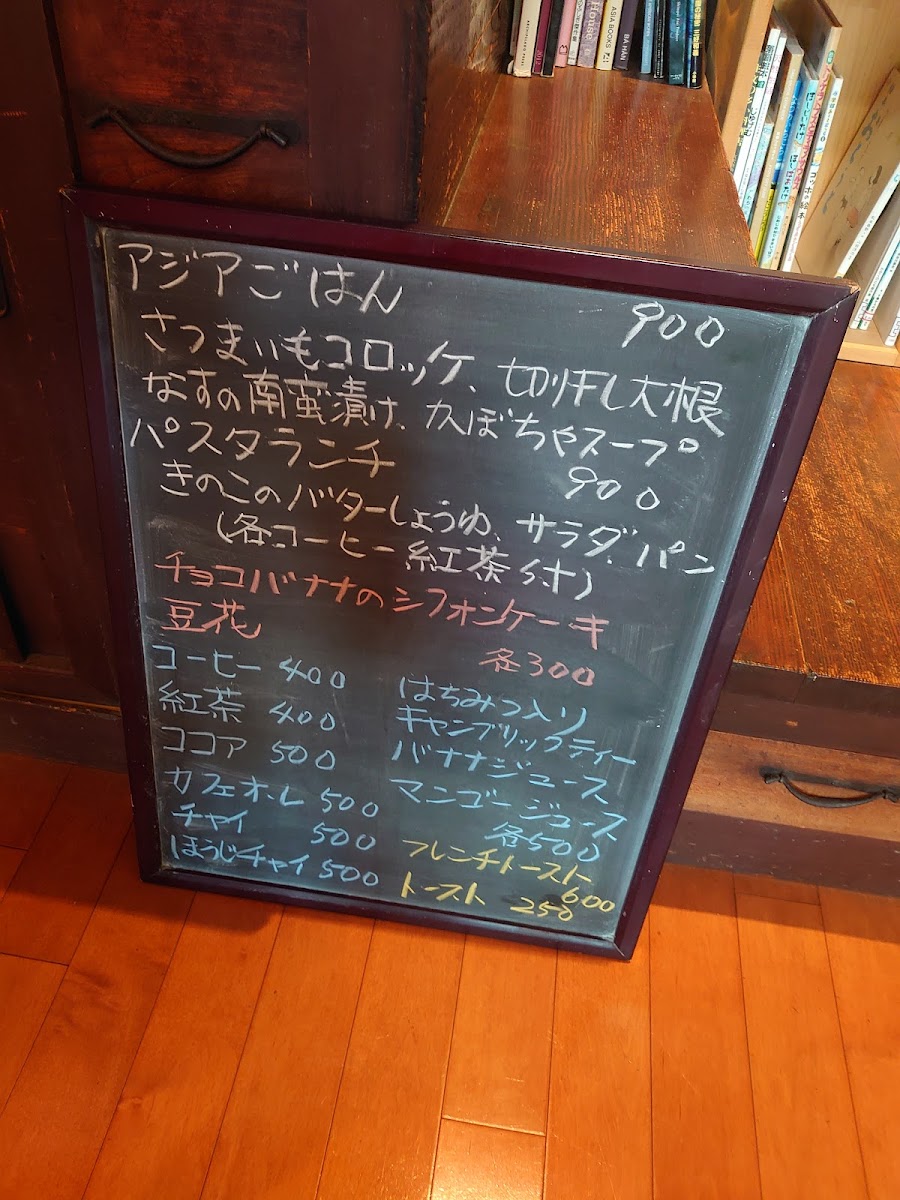 House
ASIA BOOKS
BA HAN
アジアごはん 900
さつまいもコロッケ、切り干し大根
なすの南蛮漬け、かぼちゃスープ
パスタランチ 900
きのこのバターしょうゆ、サラダ、パン
(各コーヒー紅茶付)
チョコバナナのシフォンケーキ
豆花 各300
コーヒー 400
紅茶 400
ココア 500
カフェオ・レ 500
チャイ 500
ほうじチャイ 500
はちみつ入り
キャンブリックティー
バナナジュース
マンゴージュース
各500
フレンチトースト
600
トースト 250